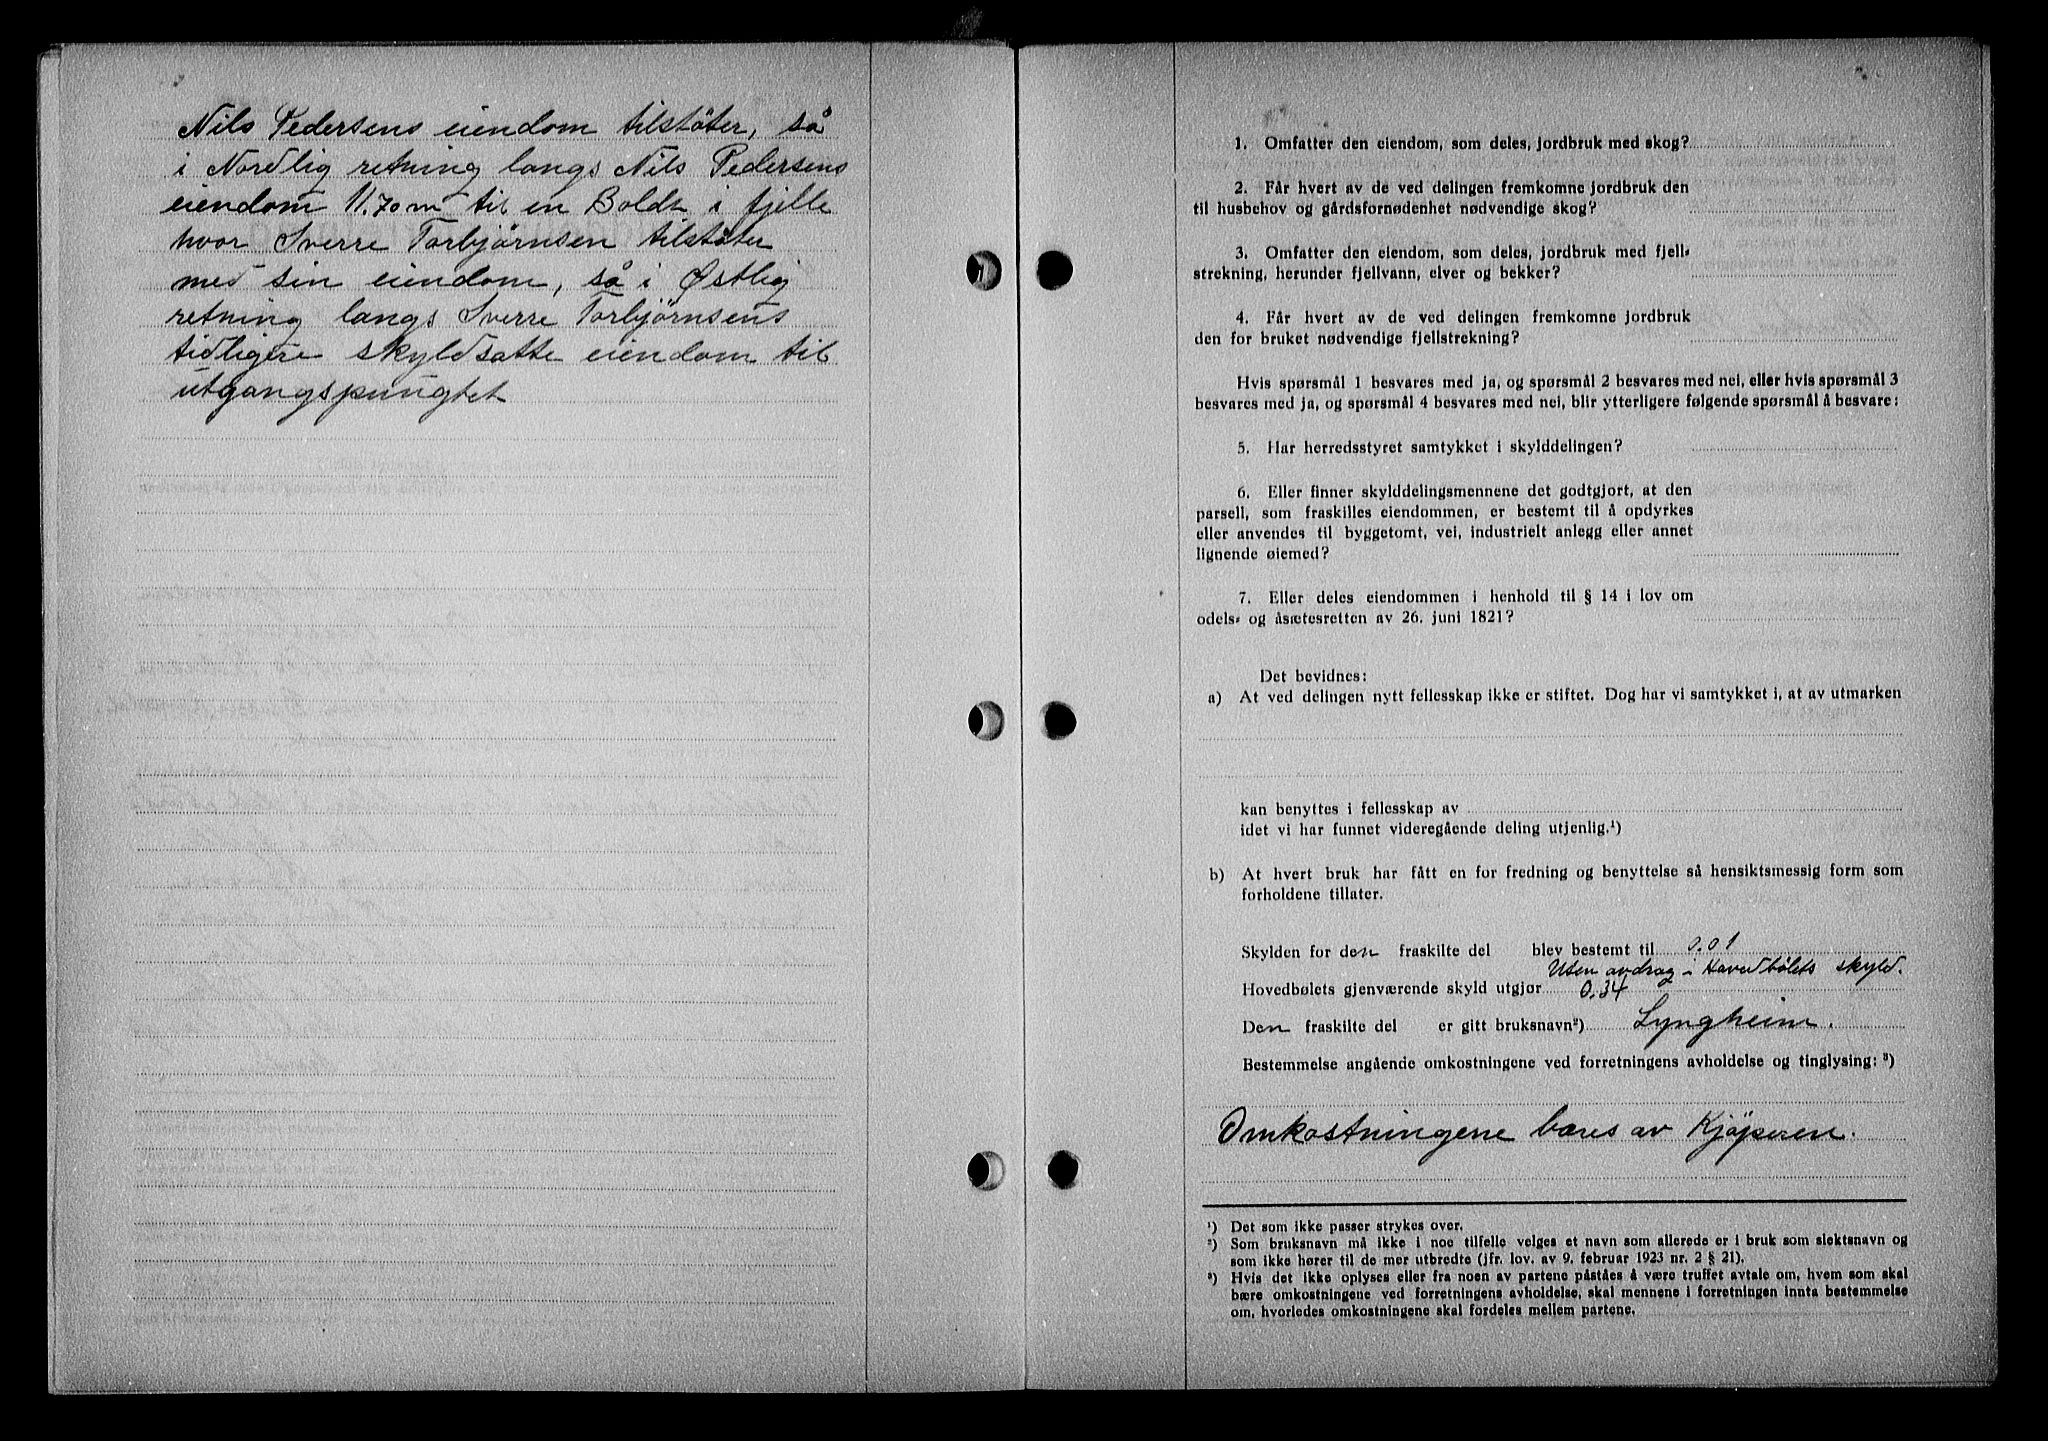 Nils Pedersens eiendom tilstöter, så
i Nordlig retning langs Nils Pedersens
eiendom 11.70 m til en Boldt i fjelle
hvor Sverre Torbjørnsen tilstöter
med sin eiendom, så i Østlig
retning langs Sverre Torbjørnsens
tidligere skyldsatte eiendom til
utgangspungtet
1. Omfatter den eiendom, som deles, jordbruk med skog?
2. Får hvert av de ved delingen fremkomne jordbruk den
til husbehov og gårdsfornødenhet nødvendige skog?
3. Omfatter den eiendom, som deles, jordbruk med fjell-
strekning, herunder fjellvann, elver og bekker?
4. Får hvert av de ved delingen fremkomne jordbruk
den for bruket nødvendige fjellstrekning?
Hvis spørsmål 1 besvares med ja, og spørsmål 2 besvares med nei, eller hvis spørsmål 3
besvares med ja, og spørsmål 4 besvares med nei, blir ytterligere følgende spørsmål å besvare:
5. Har herredsstyret samtykket i skylddelingen?
6. Eller finner skylddelingsmennene det godtgjort, at den
parsell, som fraskilles eiendommen, er bestemt til å opdyrkes
eller anvendes til byggetomt, vei, industrielt anlegg eller annet
lignende øiemed?
7. Eller deles eiendommen i henhold til § 14 i lov om
odels- og åsætesretten av 26. juni 1821?
Det bevidnes:
a) At ved delingen nytt fellesskap ikke er stiftet. Dog har vi samtykket i, at av utmarken
kan benyttes i fellesskap av
idet vi har funnet videregående deling utjenlig.¹)
b) At hvert bruk har fått en for fredning og benyttelse så hensiktsmessig form som
forholdene tillater.
Skylden for den fraskilte del blev bestemt til 0.01
Uten avdrag i Hovedbølets skyld.
Hovedbølets gjenværende skyld utgjør 0.34
Den fraskilte del er gitt bruksnavn²) Lyngheim.
Bestemmelse angående omkostningene ved forretningens avholdelse og tinglysing: ³)
Omkostningene bæres av Kjöperen.
¹) Det som ikke passer strykes over.
²) Som bruksnavn må ikke i noe tilfelle velges et navn som allerede er i bruk som slektsnavn og
som ikke hører til de mer utbredte (jfr. lov. av 9. februar 1923 nr. 2 § 21).
³) Hvis det ikke oplyses eller fra noen av partene påståes å være truffet avtale om, hvem som skal
bære omkostningene ved forretningens avholdelse, skal mennene i forretningen innta bestemmelse
om, hvorledes omkostningene skal fordeles mellem partene.